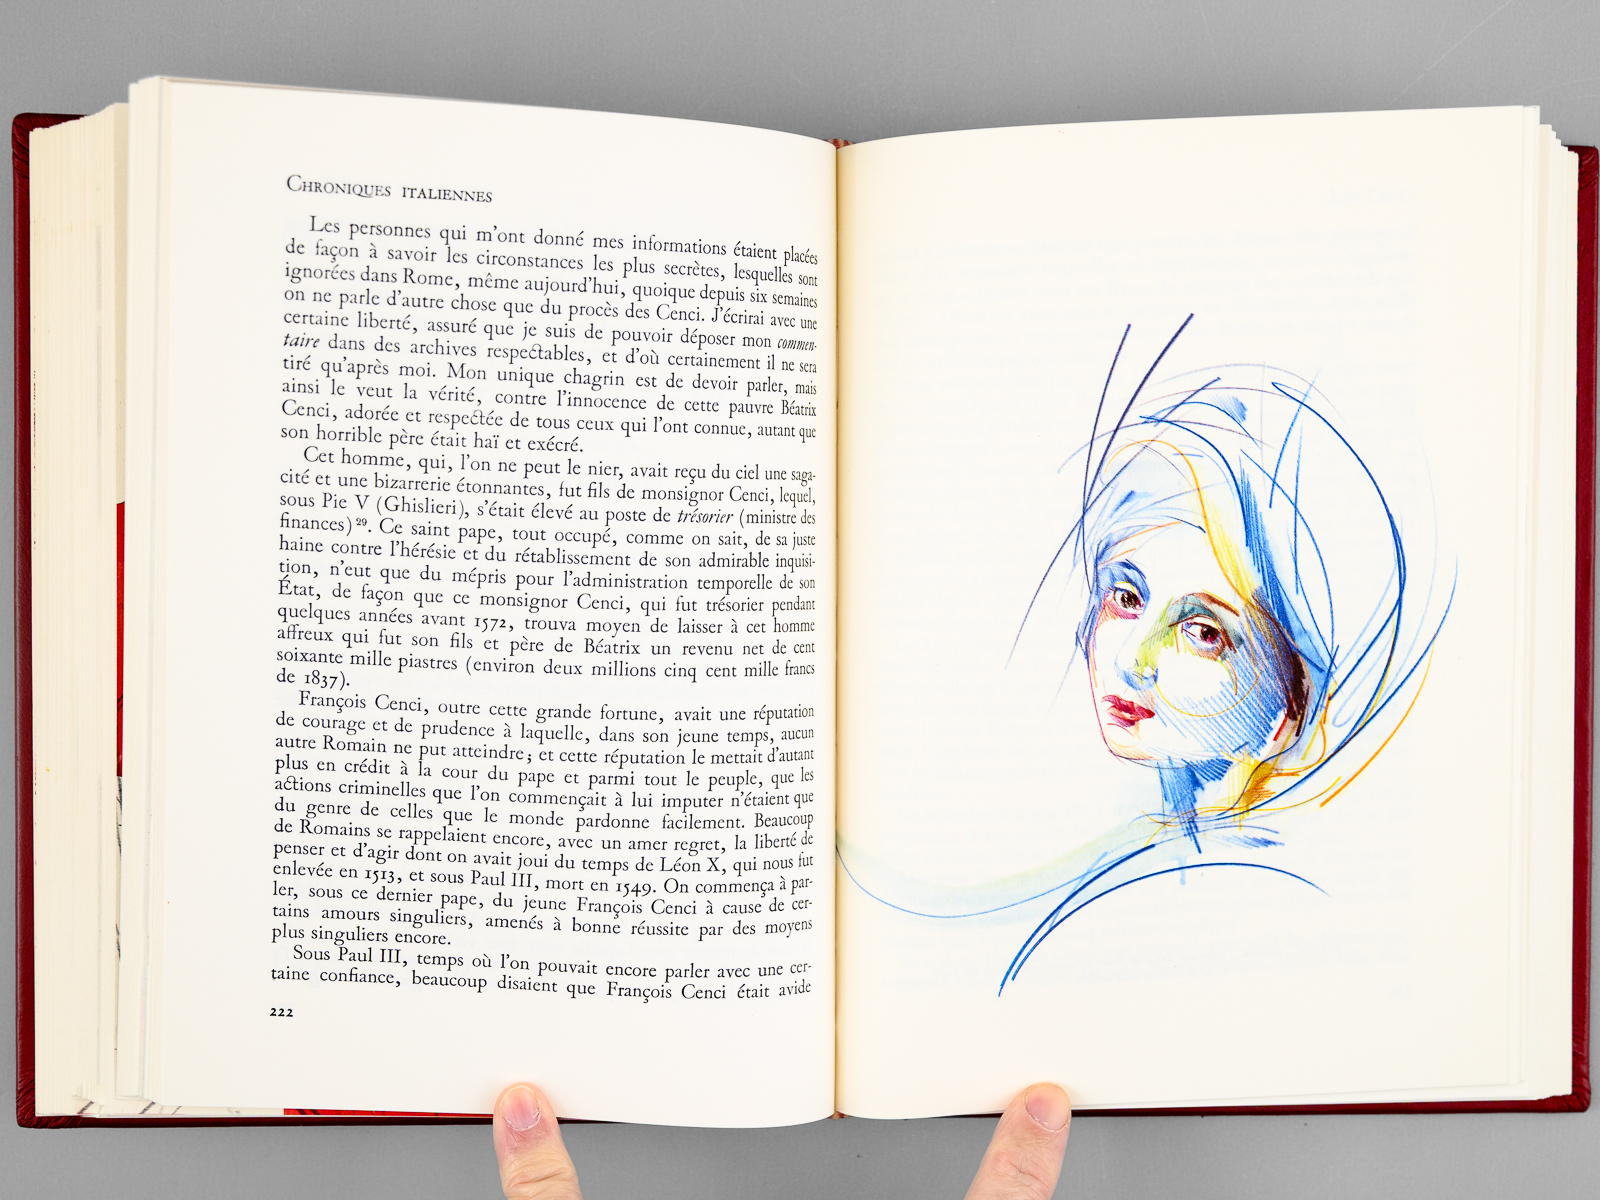 Chroniques italiennes
Les personnes qui m'ont donné mes informations étaient placées
de façon à savoir les circonstances les plus secrètes, lesquelles sont
ignorées dans Rome, même aujourd'hui, quoique depuis six semaines
on ne parle d'autre chose que du procès des Cenci. J'écrirai avec une
certaine liberté, assuré que je suis de pouvoir déposer mon commen-
taire dans des archives respectables, et d'où certainement il ne sera
tiré qu'après moi. Mon unique chagrin est de devoir parler, mais
ainsi le veut la vérité, contre l'innocence de cette pauvre Béatrix
Cenci, adorée et respectée de tous ceux qui l'ont connue, autant que
son horrible père était haï et exécré.
Cet homme, qui, l'on ne peut le nier, avait reçu du ciel une saga-
cité et une bizarrerie étonnantes, fut fils de monsignor Cenci, lequel,
sous Pie V (Ghislieri), s'était élevé au poste de trésorier (ministre des
finances) 29. Ce saint pape, tout occupé, comme on sait, de sa juste
haine contre l'hérésie et du rétablissement de son admirable inquisi-
tion, n'eut que du mépris pour l'administration temporelle de son
État, de façon que ce monsignor Cenci, qui fut trésorier pendant
quelques années avant 1572, trouva moyen de laisser à cet homme
affreux qui fut son fils et père de Béatrix un revenu net de cent
soixante mille piastres (environ deux millions cinq cent mille francs
de 1837).
François Cenci, outre cette grande fortune, avait une réputation
de courage et de prudence à laquelle, dans son jeune temps, aucun
autre Romain ne put atteindre; et cette réputation le mettait d'autant
plus en crédit à la cour du pape et parmi tout le peuple, que les
actions criminelles que l'on commençait à lui imputer n'étaient que
du genre de celles que le monde pardonne facilement. Beaucoup
de Romains se rappelaient encore, avec un amer regret, la liberté de
penser et d'agir dont on avait joui du temps de Léon X, qui nous fut
enlevée en 1513, et sous Paul III, mort en 1549. On commença à par-
ler, sous ce dernier pape, du jeune François Cenci à cause de cer-
tains amours singuliers, amenés à bonne réussite par des moyens
plus singuliers encore.
Sous Paul III, temps où l'on pouvait encore parler avec une cer-
taine confiance, beaucoup disaient que François Cenci était avide
222